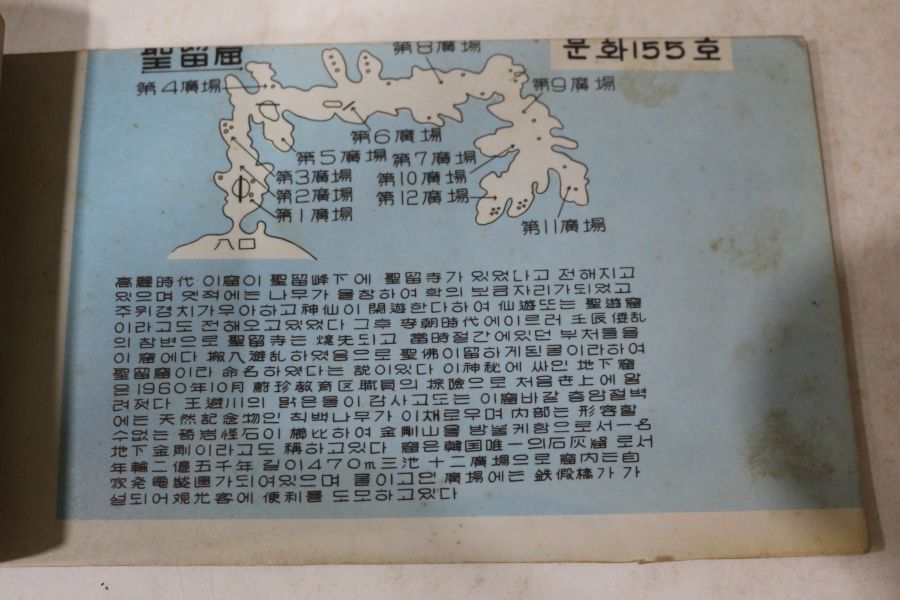 聖留窟
문화155호
第8廣場
第4廣場
第9廣場
第6廣場
第5廣場
第7廣場
第3廣場
第10廣場
第2廣場
第12廣場
第1廣場
第11廣場
入口
高麗時代 이窟이 聖留峰下에 聖留寺가 있었다고 전해지고
있으며 옛적에는 나무가 울창하여 학의 보금자리가되었고
주위경치가우아하고神仙이 閑遊한다하여 仙遊또는 聖遊窟
이라고도 전해오고있었다 그후 李朝時代에이르러 壬辰倭乱
의 참변으로 聖留寺는 燒失되고 當時절간에있던 부처들을
이 窟에다 搬入 遊乱하였음으로 聖佛이留하게된굴이라하여
聖留窟이라 命名하였다는 說이있다 이神秘에 싸인 地下窟
은 1960年10月 蔚珍教育区職員의 探險으로 처음 世上에 알
려졋다 王避川의 맑은물이 감사고도는 이窟바같 층암절벽
에는 天然記念物인 칙백나무가 이채로우며 内部는 形容할
수없는 奇岩怪石이 櫛比하여 金剛山을 방불케함으로서一名
地下金剛이라고도 稱하고있다 窟은韓国唯一의石灰窟로서
年輪二億五千年 길이470m三池 十二廣場으로 窟内는自
家発電裝置가되여있으며 물이고인 廣場에는 鉄假橋가 가
설되어 观光客에 便利를 도모하고있다